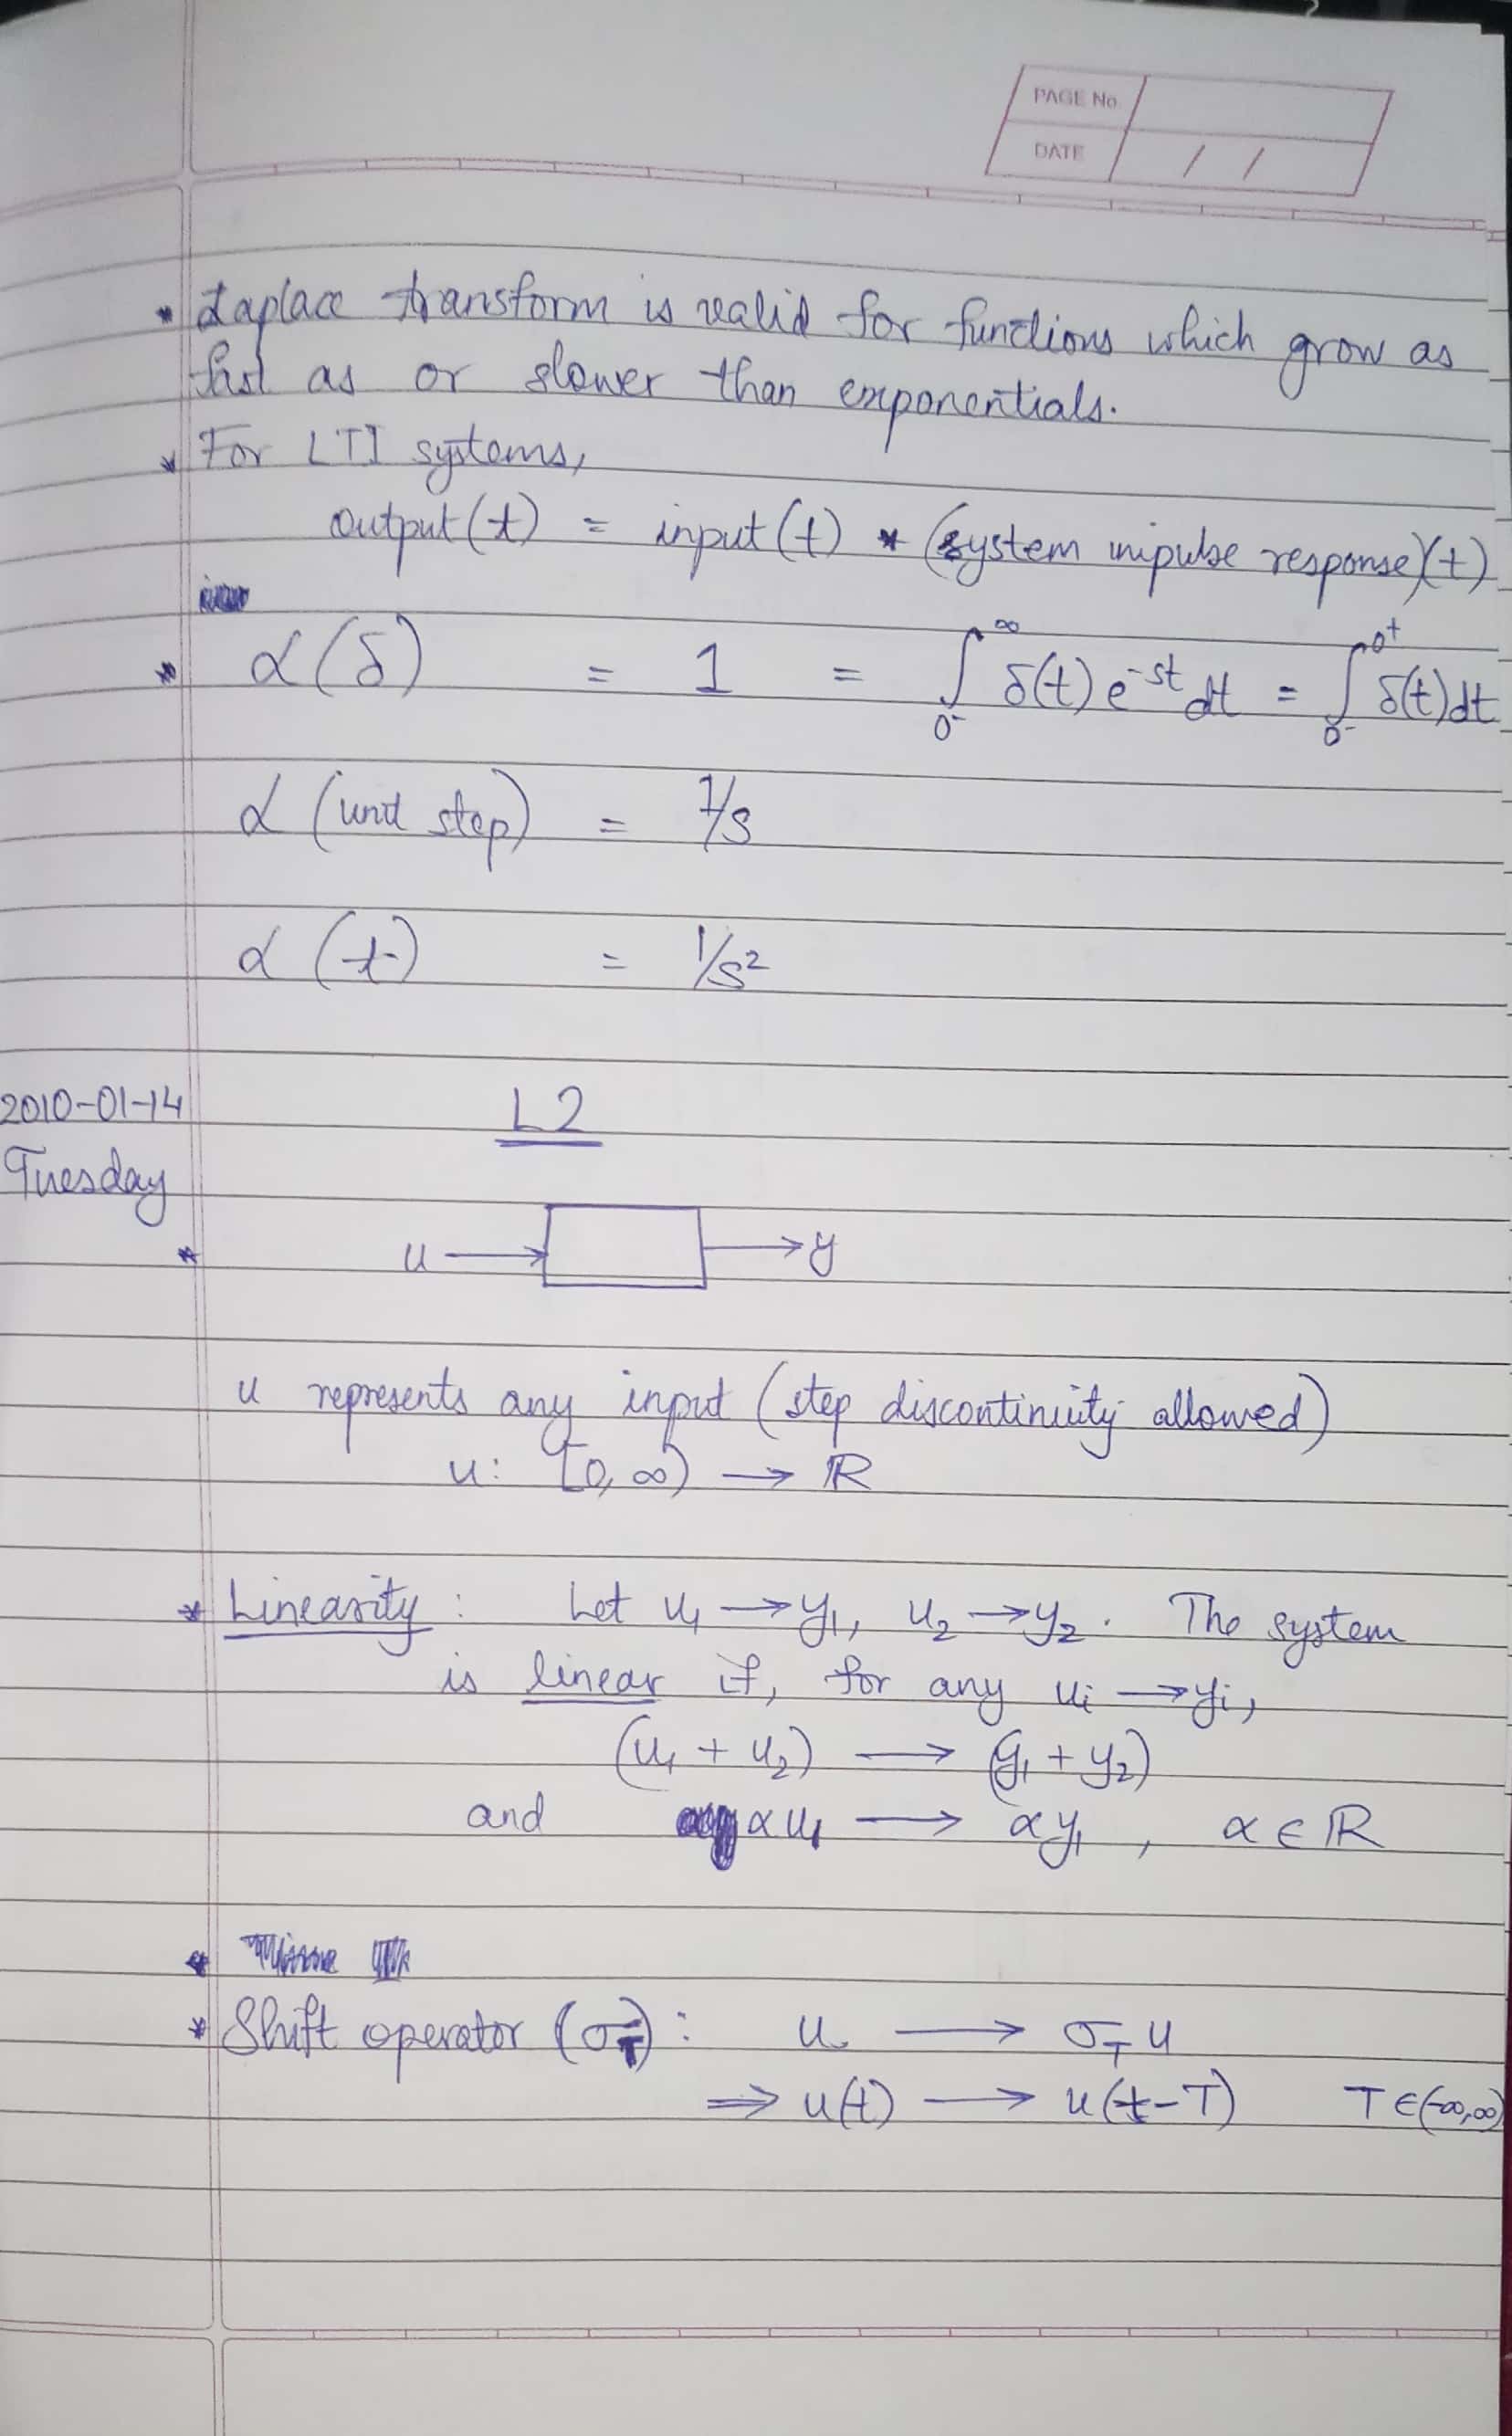 PAGE No.
DATE / /
* Laplace transform is valid for functions which grow as
fast as or slower than exponentials.
* For LTI systems,
output(t) = input(t) * (system impulse response)(t)
* ℒ(δ) = 1 = ∫₀⁻^∞ δ(t) e^-st dt = ∫₀⁻^0⁺ δ(t)dt
ℒ (unit step) = 1/s
ℒ (t) = 1/s²
2010-01-14 L2
Tuesday
* u → y
u represents any input (step discontinuity allowed)
u: [0, ∞) → ℝ
* Linearity : Let u₁ → y₁, u₂ → y₂. The system
is linear if, for any uᵢ → yᵢ,
(u₁ + u₂) → (y₁ + y₂)
and αu₁ → αy₁ , α ∈ ℝ
*
* Shift operator (σ_T) : u → σ_T u
⇒ u(t) → u(t-T) T ∈ (-∞,∞)